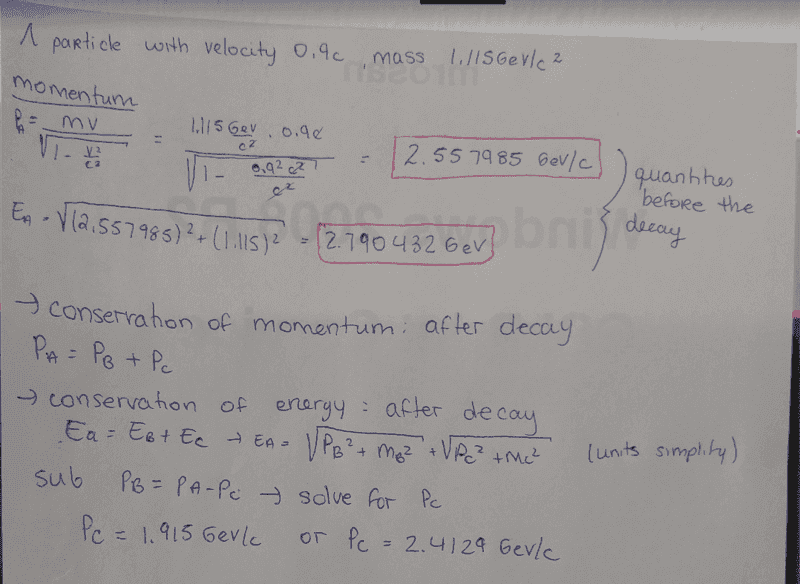 Λ particle with velocity 0.9c, mass 1.115GeV/c²
momentum
P_A = mv / √(1 - v²/c²) = 1.115 GeV/c² · 0.9c / √(1 - 0.9²c²/c²) = 2.557985 GeV/c
quantities
before the
decay
E_A = √((2.557985)² + (1.115)²) = 2.790432 GeV
→ conservation of momentum: after decay
P_A = P_B + P_C
→ conservation of energy: after decay
Ea = E_B + E_C → E_A = √(P_B² + M_B²) + √(P_C² + M_C²) (units simplify)
sub P_B = P_A - P_C → solve for P_C
P_C = 1.915 GeV/c or P_C = 2.4129 GeV/c